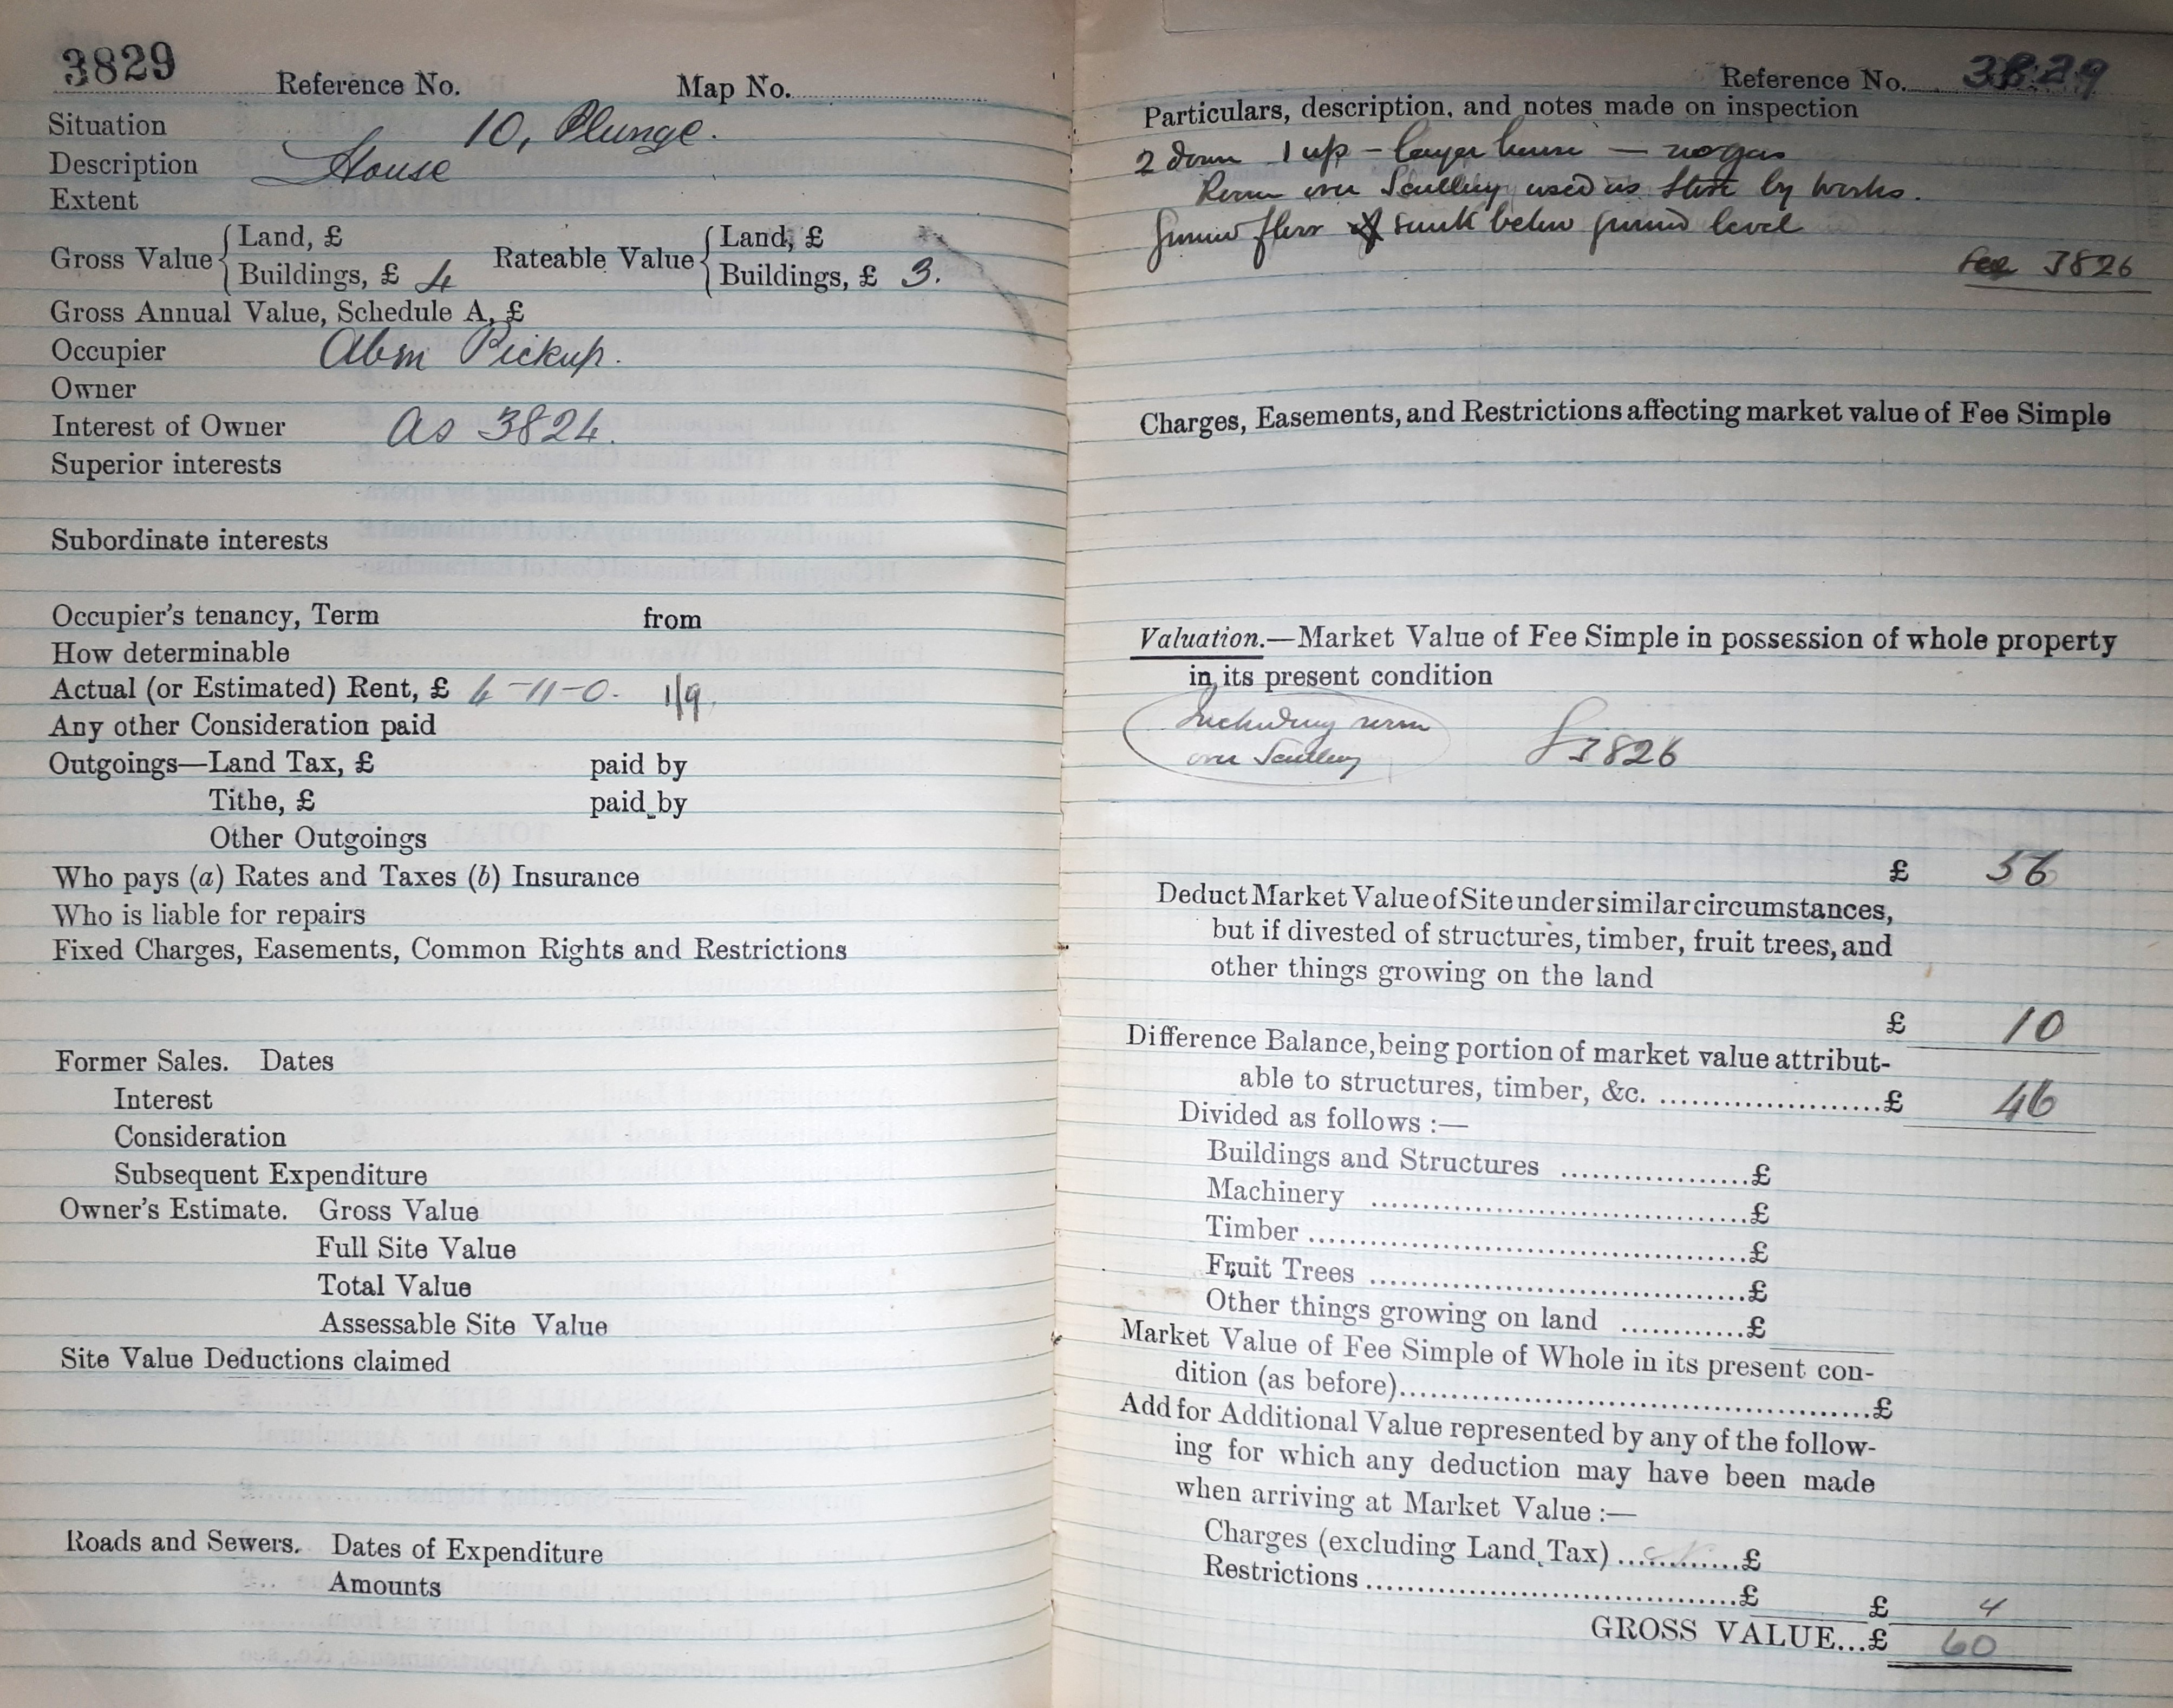 3829
Reference No. Map No.
Situation 10, Plunge.
Description House
Extent
Gross Value { Land, £ Rateable Value { Land, £
Buildings, £ 4 Buildings, £ 3.
Gross Annual Value, Schedule A, £
Occupier Abm Pickup.
Owner
Interest of Owner as 3824.
Superior interests
Subordinate interests
Occupier's tenancy, Term from
How determinable
Actual (or Estimated) Rent, £ 4-11-0. 1/9.
Any other Consideration paid
Outgoings—Land Tax, £ paid by
Tithe, £ paid by
Other Outgoings
Who pays (a) Rates and Taxes (b) Insurance
Who is liable for repairs
Fixed Charges, Easements, Common Rights and Restrictions
Former Sales. Dates
Interest
Consideration
Subsequent Expenditure
Owner's Estimate. Gross Value
Full Site Value
Total Value
Assessable Site Value
Site Value Deductions claimed
Roads and Sewers. Dates of Expenditure
Amounts
Reference No. 3829
Particulars, description, and notes made on inspection
2 down 1 up - larger house - no gas
Room over Scullery used as store by works.
Ground floor sunk below ground level
See 3826
Charges, Easements, and Restrictions affecting market value of Fee Simple
Valuation.—Market Value of Fee Simple in possession of whole property
in its present condition
Including room
over Scullery
3826
£ 56
Deduct Market Value of Site under similar circumstances,
but if divested of structures, timber, fruit trees, and
other things growing on the land
£ 10
Difference Balance, being portion of market value attribut-
able to structures, timber, &c. ....................£ 46
Divided as follows :—
Buildings and Structures ..................£
Machinery ....................................£
Timber ..........................................£
Fruit Trees ....................................£
Other things growing on land ............£
Market Value of Fee Simple of Whole in its present con-
dition (as before)..........................................£
Add for Additional Value represented by any of the follow-
ing for which any deduction may have been made
when arriving at Market Value :—
Charges (excluding Land Tax) ............£
Restrictions ....................................£
£ 4
GROSS VALUE...£ 60